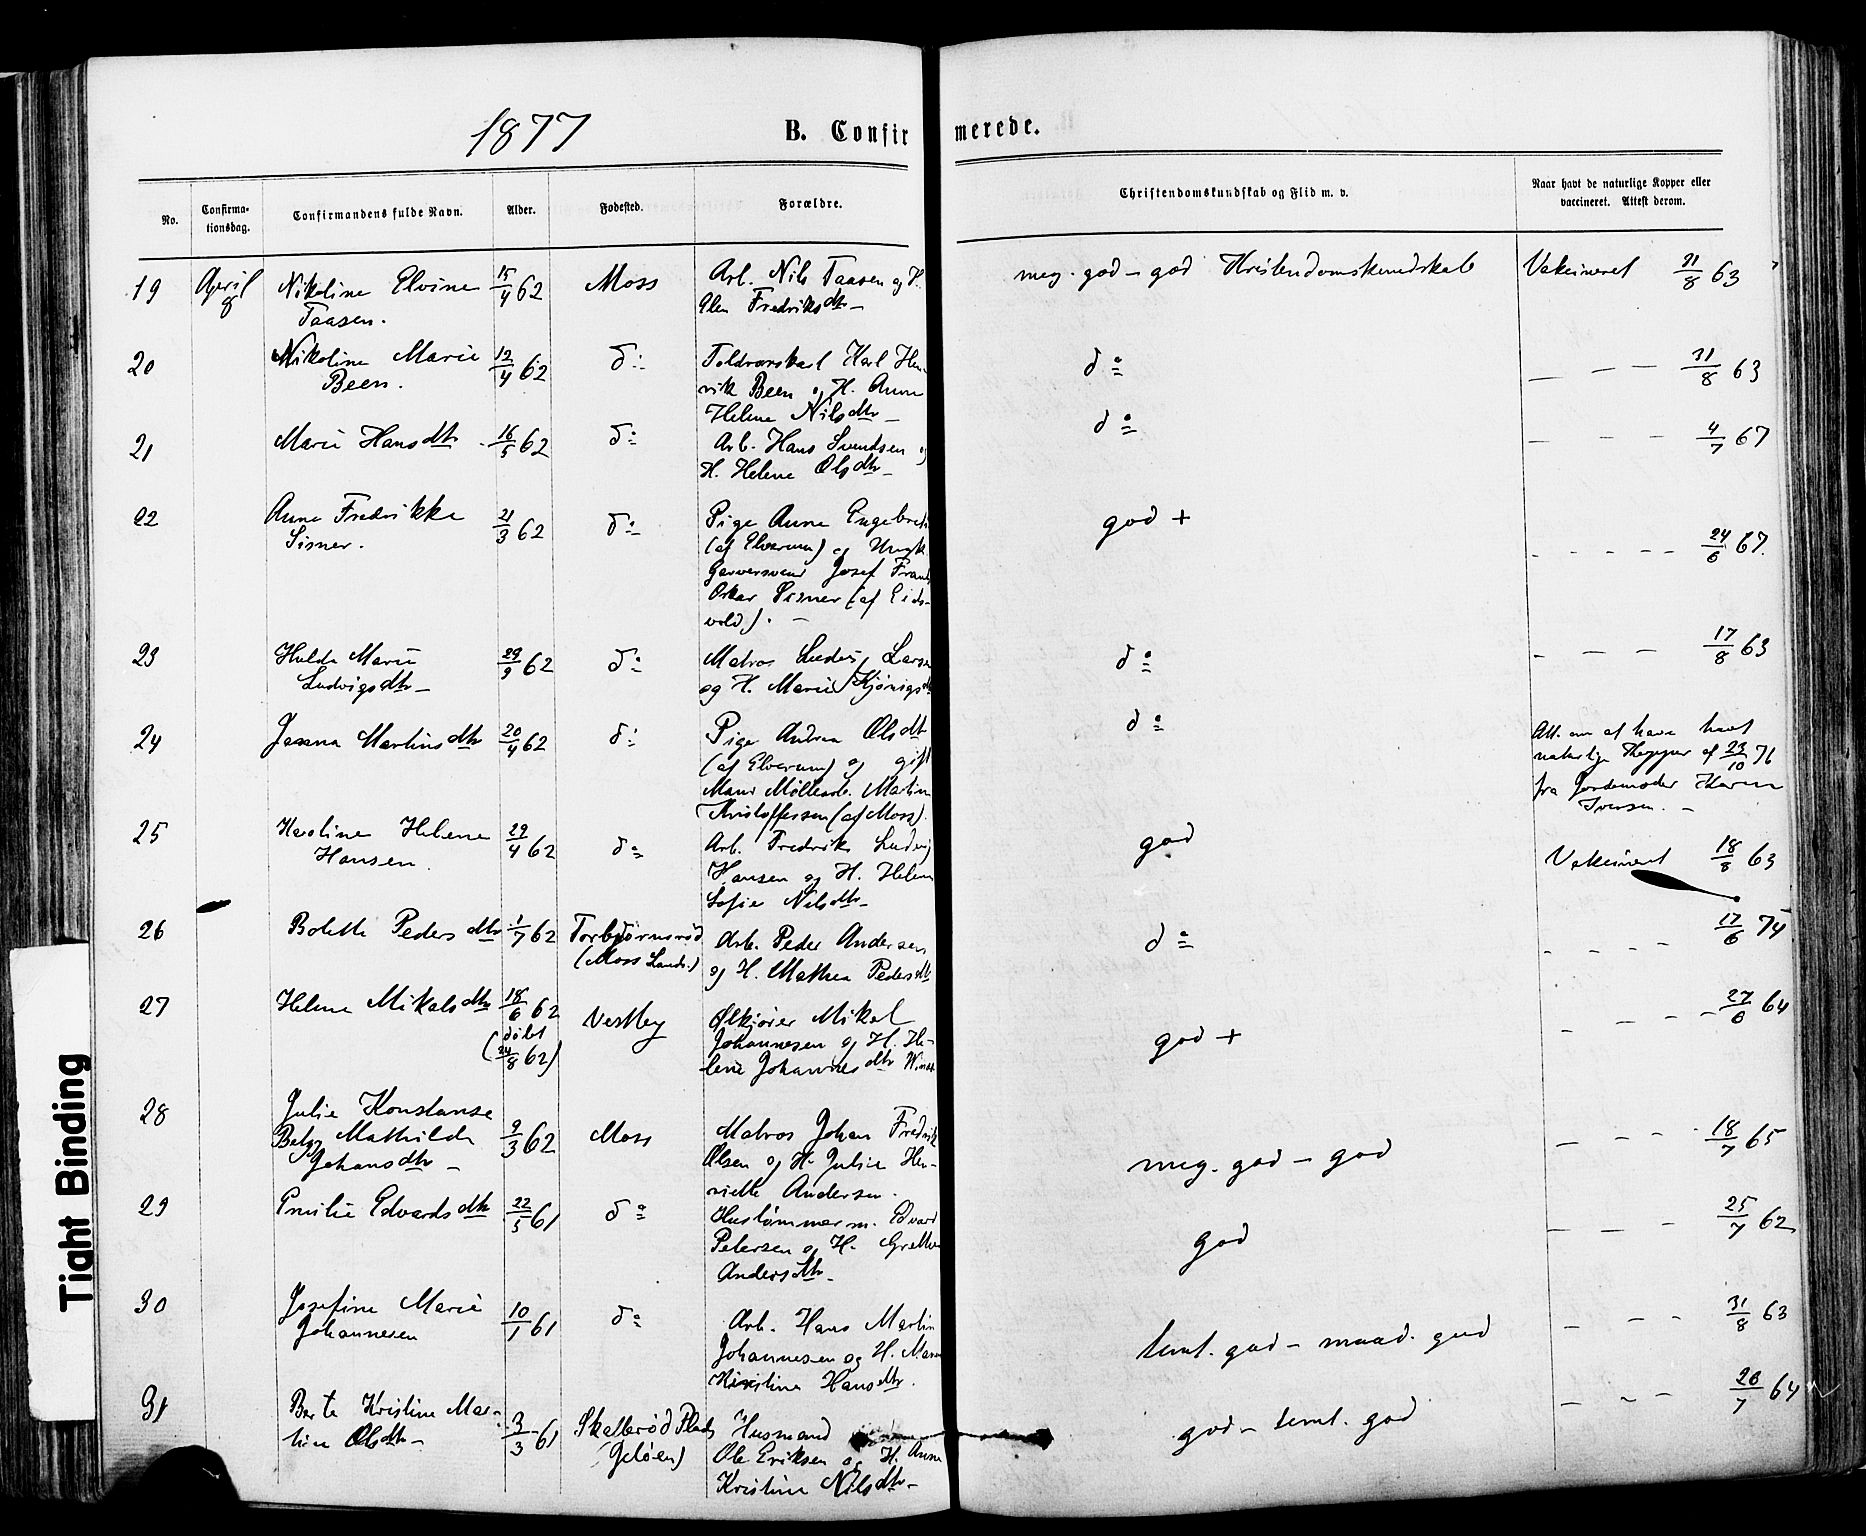 1877
B. Confirmerede.
No. Confirma- Confirmandens fulde Navn. Alder. Fødested. Forældre. Christendomskundskab og Flid m. v. Naar havt de naturlige Kopper eller
tionsdag. vaccineret. Attest derom.
19 April Nikoline Elvine 15/4 62 Moss Arb. Nils Taasen og H. meg. god - god Kristendomskundskab Vakcineret 31/8 63
8 Taasen. Elen Fredriksdtr
20 Nikoline Marie 12/4 62 do Toldroerskarl Karl Hen- do — — — 31/8 63
Been. rik Been og H. Anne
Helene Nilsdtr
21 Marie Hansdtr 16/5 62 do Arb. Hans Svendsen og do — — — 4/7 67
H. Helene Olsdtr
22 Anne Fredrikke 21/3 62 do Pige Anne Engebretsd god + - - - - - 24/6 67.
Sisner. (af Elverum) og Ungk.
Garversvend Josef Frants
Oskar Sisner (af Eids-
vold).
23 Hulda Marie 29/9 62 do Matros Ludvig Larsen do - - - - 17/8 63
Ludvigsdtr og H. Marie
24 Martinsdtr 20/4 62 do Pige Andrea Olsdtr do Att. om at have havt
(af Elverum) og gift naturlige Kopper af 23/10 76
Mand Møllearb. Martin fra Jordemoder Karen
Kristoffersen (af Moss). Iversen.
25 Karoline Helene 29/4 62 do Arb. Fredrik Ludvig god Vakcineret 18/8 63
Hansen. Hansen og H. Helene
Sofie Nilsdtr
26 Bolette Pedersdtr 1/7 62 Torbjørnsrød Arb. Peder Andersen do - - - - 17/6 74
(Moss Lands.) og H. Mathea Pedersdtr
27 Helene Mikalsdtr 18/6 62 Vestby Ølkjører Mikal god + - - - - 27/6 64
(døbt Johannesen og H. He-
24/8 62) lene Johannesdtr
28 Julie Konstanse 9/3 62 Moss Matros Johan Fredrik meg. god - god — - - 18/7 65
Betsy Mathilde Olsen og H. Julie Hen-
Johansdtr riette Andersen.
29 Emilie Edvardsdtr 22/5 61 do Hustømmerm. Edvard god — — - 25/7 62
Petersen og H. Grethe
Andersdtr
30 Josefine Marie 10/1 61 do Arb. Hans Martin temt. god - maad. god — - - 31/8 63
Johannesen Johannesen og H. Maren
Kristine Hansdtr.
31 Berte Kristine Mar- 3/3 61 Skallerød Plads Husmand god - temt. god — - - 20/7 64
tine Olsdtr (Geløen) Ole Eriksen og H. Anne
Kristine Nilsdtr
Tight Binding